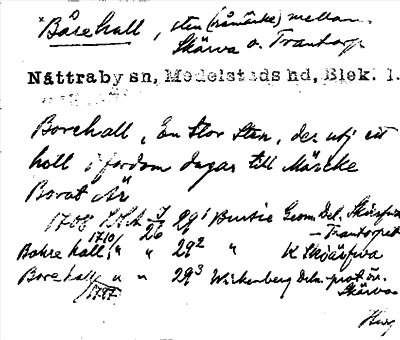 *Bårehall, sten (råmärke) mellan
Skärva o. Trantorp
Nättraby sn, Medelstads hd, Blek. l.
Borehall, En stor Sten, der utj ett
håll i fordom dagar till Märcke
Borat Är
1708 LMA J/26 29¹ Geom. Del. Skärfva
– Trantorpet
Bokre hall 1710/" " 29² " K Skiärfwa
Borehall 1797/" " 29³ Wickenberg Deln. prot. öv.
Skärva